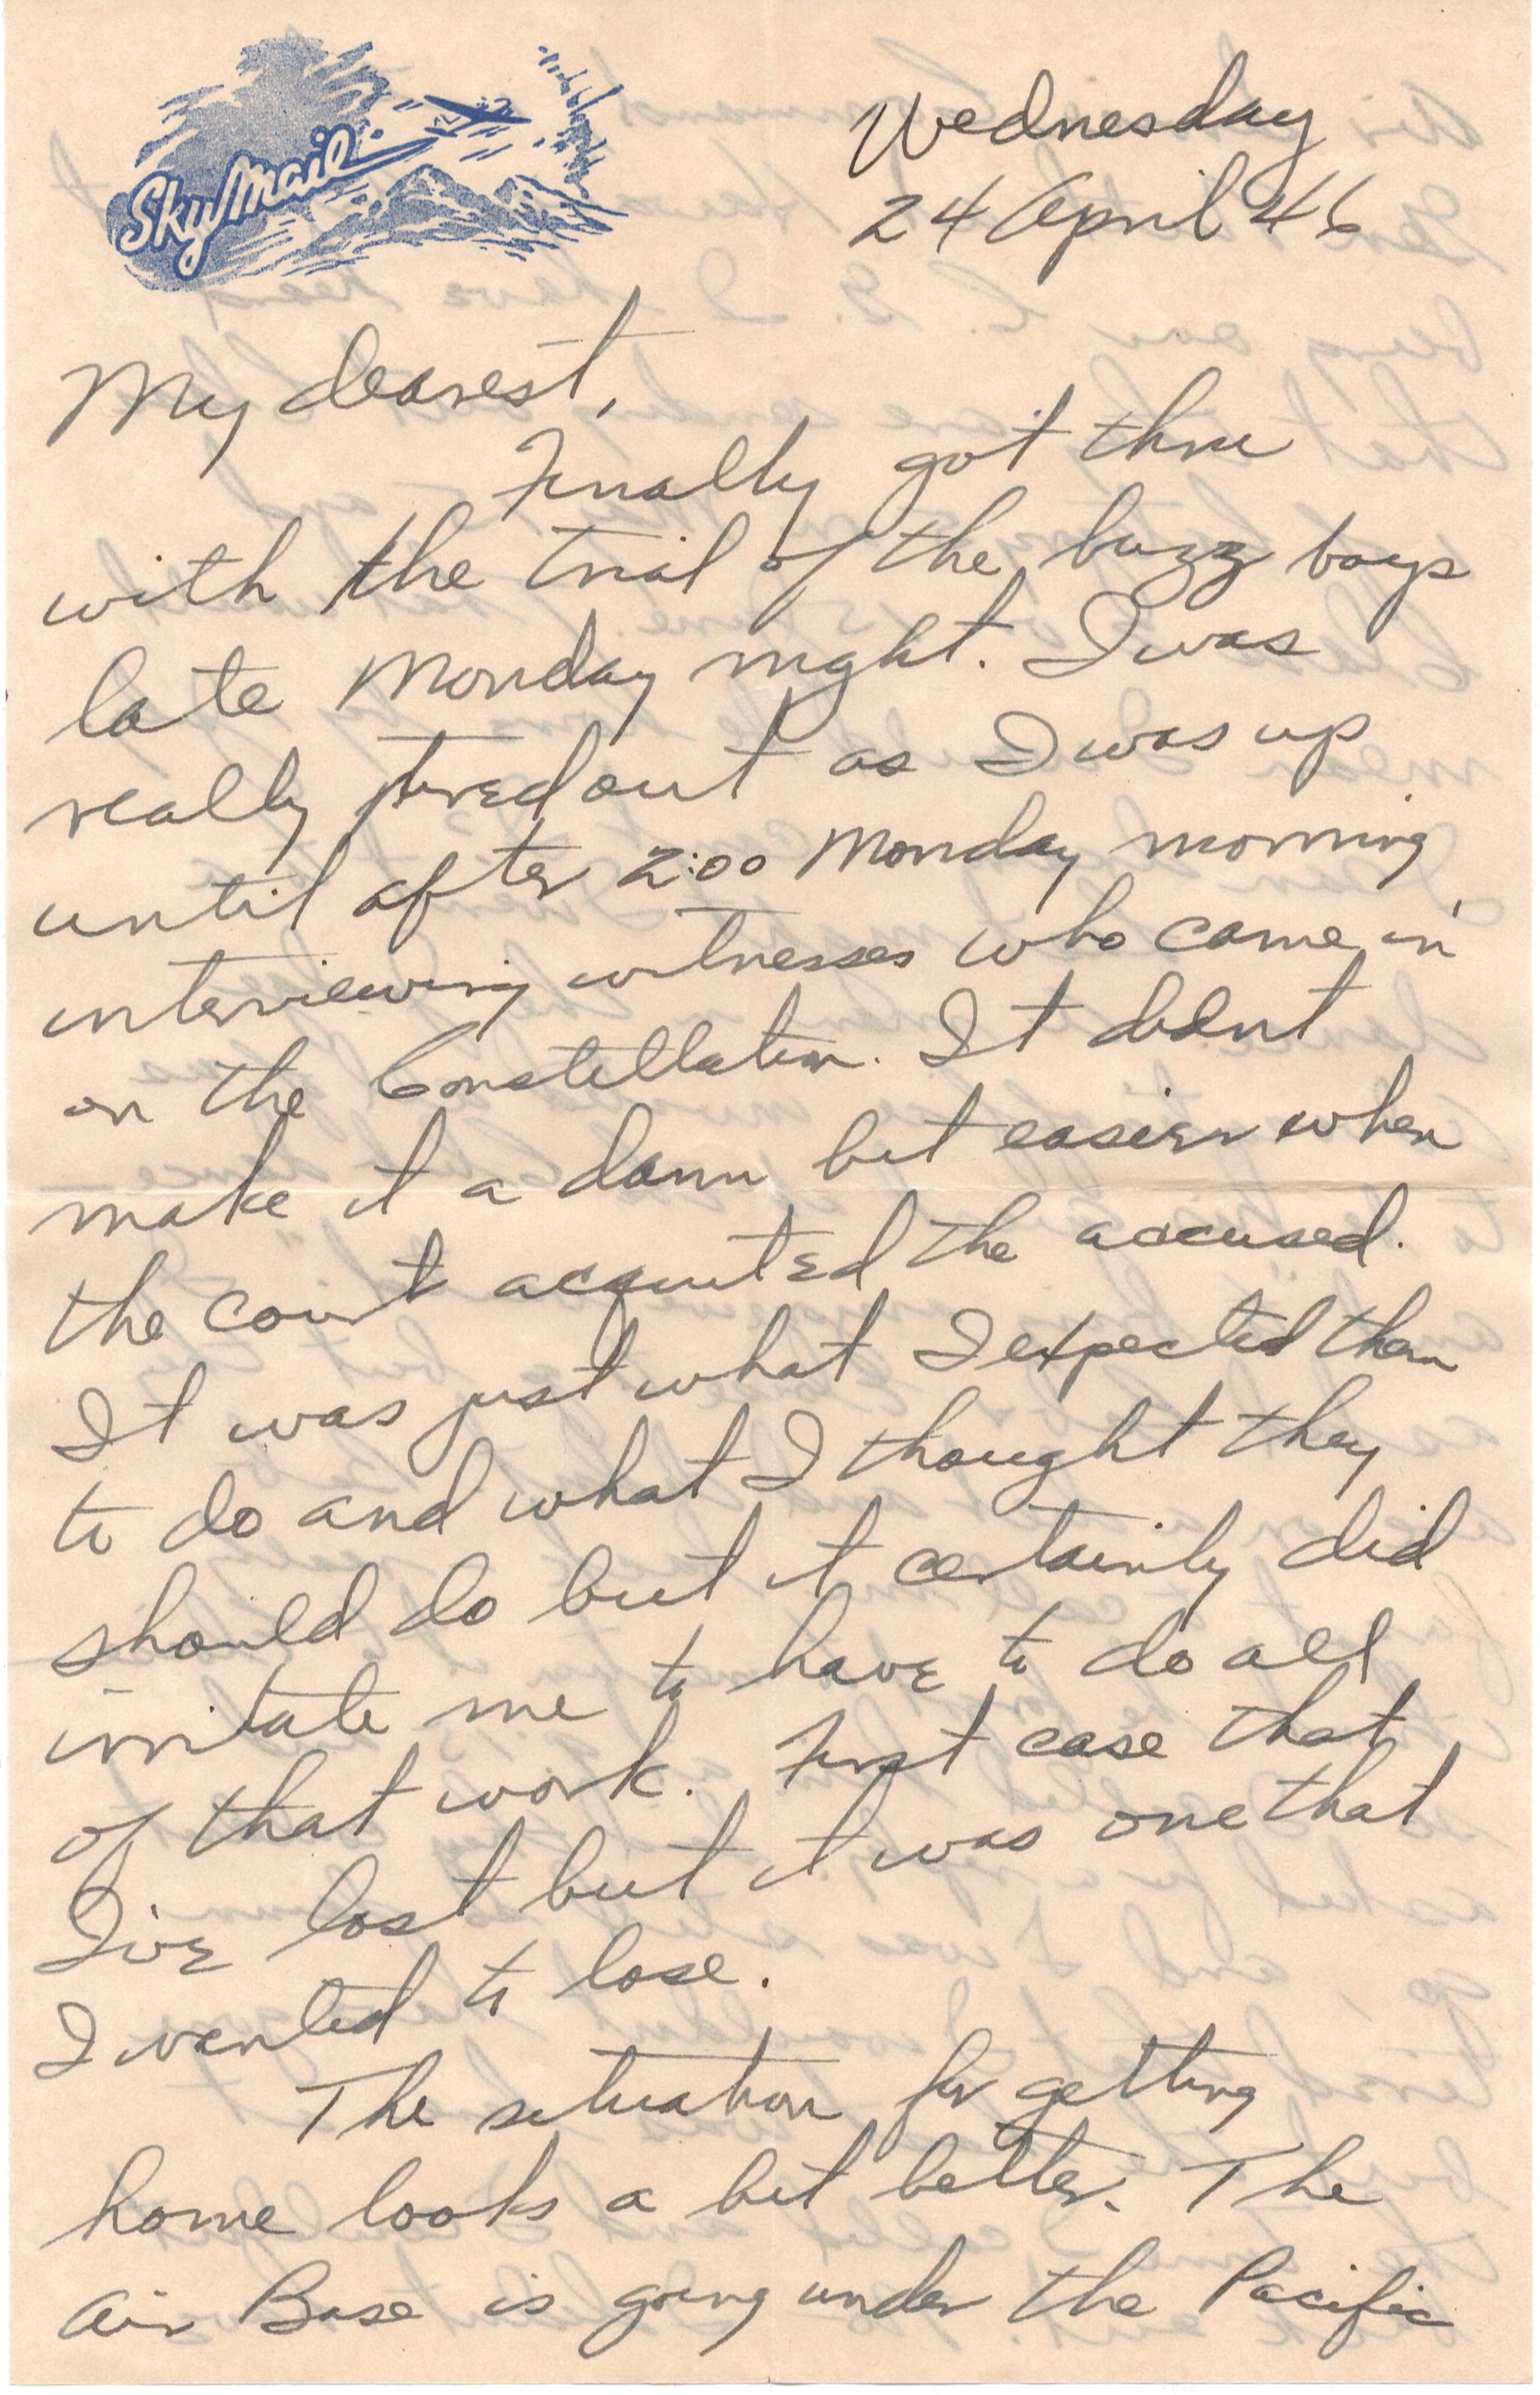 SkyMail
Wednesday
24 April 46
My dearest,
Finally got thru
with the trial of the buzz boys
late Monday night. I was
really tired out as I was up
until after 2:00 Monday morning
interviewing witnesses who came in
on the Constellation. It didnt
make it a damn bit easier when
the court acquited the accused.
It was just what I expected them
to do and what I thought they
should do but it certainly did
irritate me to have to do all
of that work. First case that
I've lost but it was one that
I wanted to lose.
The situation for getting
home looks a bit better. The
Air Base is going under the Pacific